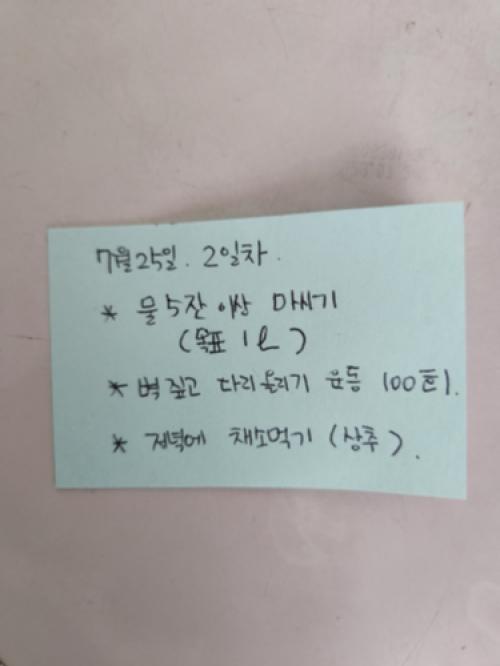 7월25일. 2일차.
* 물 5잔 이상 마시기
(목표 1L)
* 벽 짚고 다리올리기 운동 100회.
* 저녁에 채소먹기 (상추).